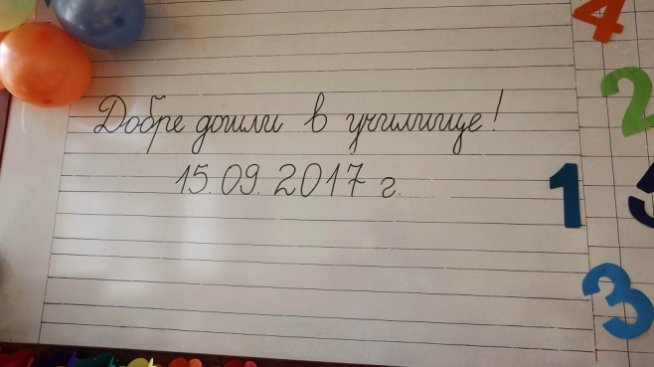 Добре дошли в училище!
15.09.2017 г.
4
2
1
5
3